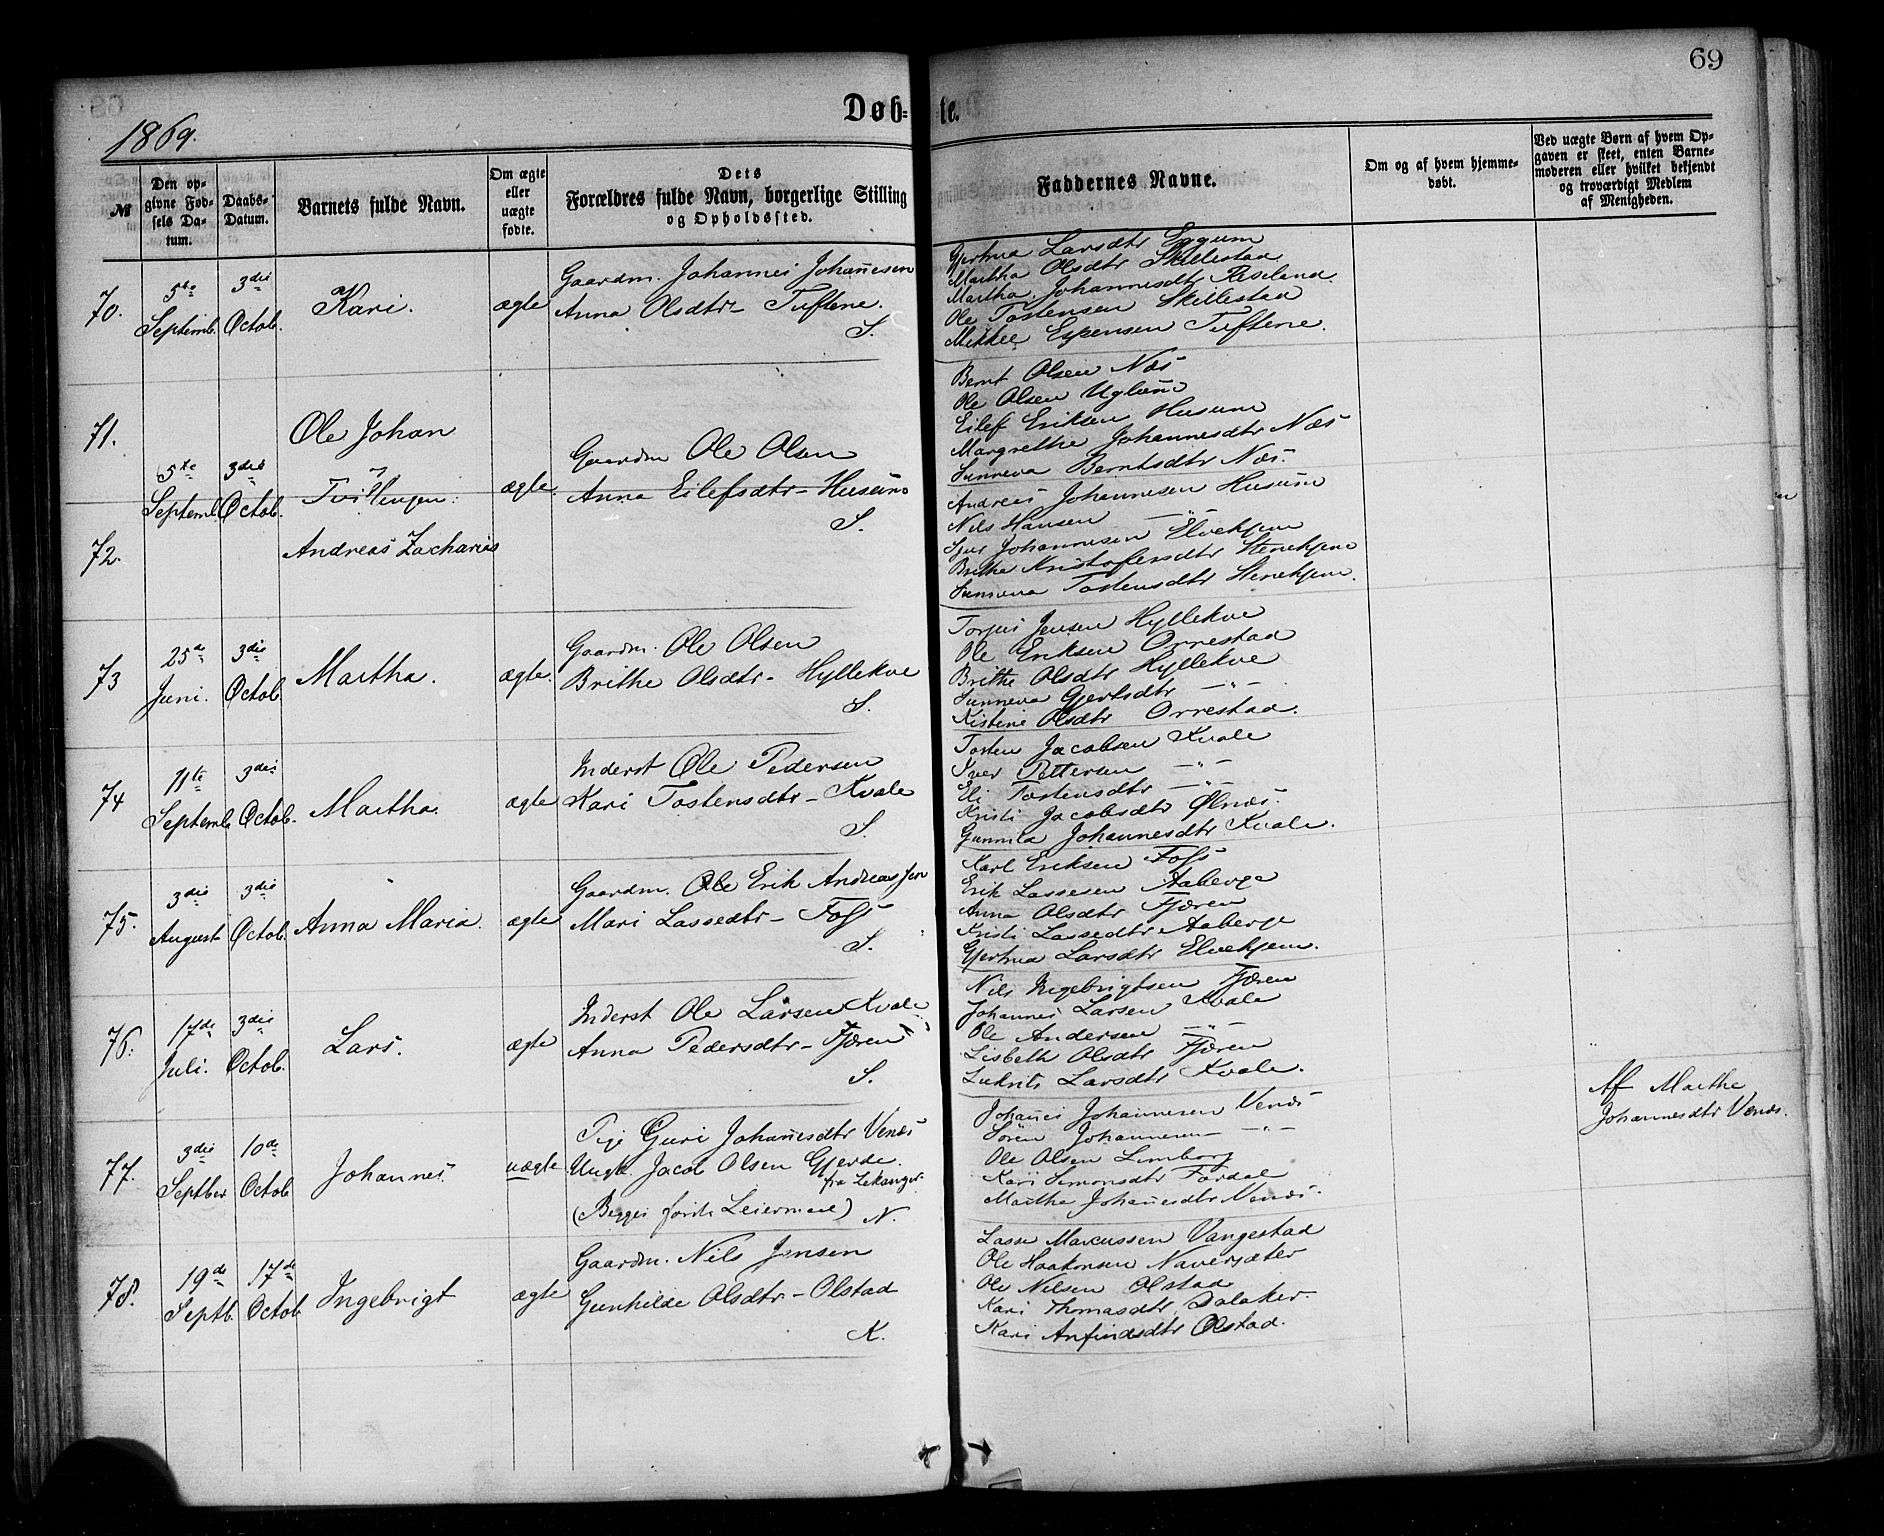 69
Døb-te.
1869.
№
Den op-
givne Fød-
sels Da-
tum.
Daabs-
Datum.
Barnets fulde Navn.
Om ægte
eller
uægte
fødte.
Dets
Forældres fulde Navn, borgerlige Stilling
og Opholdssted.
Faddernes Navne.
Om og af hvem hjemme-
døbt.
Ved uægte Børn af hvem Op-
gaven er skeet, enten Barne-
moderen eller hvilket bekjendt
og troværdigt Medlem
af Menigheden.
70.
5te
Septemb.
3die
Octob.
Kari.
ægte
Gaardm. Johannes Johannesen
Anna Olsdtr - Tuftene.
S.
Gjertrud Larsdtr Eggum
Martha Olsdtr Skillestad
Martha Johannesdtr Riseland.
Ole Tostensen Skillestad
Mikkel Espensen Tuftene.
71.
Ole Johan
5te
Septemb.
3die
Octob.
Tvillinger:
ægte.
72.
Andreas Zacharias
Gaardm Ole Olsen
Anna Eilefsdtr - Husum
S.
Bernt Olsen Næs
Ole Olsen Uglum
Eilef Eriksen Husum
Margrethe Johannesdtr Næs
Sunneva Berntsdtr Næs.
Andreas Johannesen Husum
Nils Hansen —"—
Sjur Johannesen Elvekjem
Brithe Kristofersdtr Stenehjem
Sunneva Tostensdtr Stenehjem.
73
25de
Juni.
3die
Octob.
Martha.
ægte.
Gaardm. Ole Olsen
Brithe Olsdtr - Hyllekve
S.
Torjus Jensen Hyllekve
Ole Eriksen Orrestad
Brithe Olsdtr Hyllekve
Sunneva Gjertsdtr —"—
Kistine Olsdtr Orrestad.
74
11te
Septemb.
3die
Octob.
Martha.
ægte
Inderst Ole Pedersen
Kari Tostensdtr - Kvale
S.
Tosten Jacobsen Kvale
Iver Pettersen —"—
Eli Tostensdtr —"—
Kristi Jacobsdtr Ølnæs.
Gunnila Johannesdtr Kvale.
75.
3die
August
3die
Octob.
Anna Maria.
ægte
Gaardm. Ole Erik Andreassen
Mari Lassedtr - Foss
S.
Karl Eriksen Foss
Erik Lassesen Aaberge
Anna Olsdtr Fjæren
Kristi Lassedtr Aaberge
Gjertrud Larsdtr Elvekjem.
76.
17de
Juli.
3die
Octob.
Lars.
ægte
Inderst Ole Larsen Kvale
Anna Pedersdtr - Fjæren
S.
Nils Ingebrigtsen Fjæren
Johannes Larsen Kvale
Ole Andersen —"—
Lisbeth Olsdtr Fjæren
Lukrits Larsdtr Kvale.
77.
3die
Septber
10de
Octob
Johannes.
uægte
Pige Guri Johannesdtr Venæs
Ungk. Jacob Olsen Gjerde.
fra Lekanger.
(Begges første Leiermaal) N.
Johannes Johannesen Venæs
Søren Johannesen —"—
Ole Olsen Limborg
Kari Simonsdtr Fardal
Martha Johannesdtr Venæs.
Af Marthe
Johannesdtr Venæs.
78.
19de
Septb.
17de
Octob
Ingebrigt
ægte
Gaardm. Nils Jensen
Gunhilde Olsdtr - Olstad
K.
Lasse Marcussen Vangestad
Ole Haakonsen Naversæter
Ole Nilsen Olstad
Kari Thomasdtr Dalaker.
Kari Anfindsdtr Olstad.